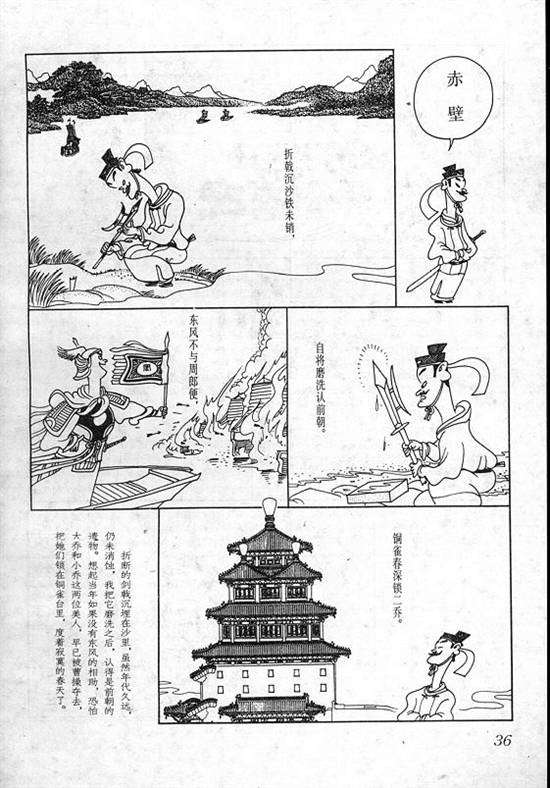 赤壁
折戟沉沙铁未销,
自将磨洗认前朝。
东风不与周郎便,
铜雀春深锁二乔。
折断的剑戟沉埋在沙里，虽然年代久远，
仍未消蚀，我把它磨洗之后，认得是前朝的
遗物。想起当年如果没有东风的相助，恐怕
大乔和小乔这两位美人，早已被曹操夺去，
把她们锁在铜雀台里，度着寂寞的春天了。
36